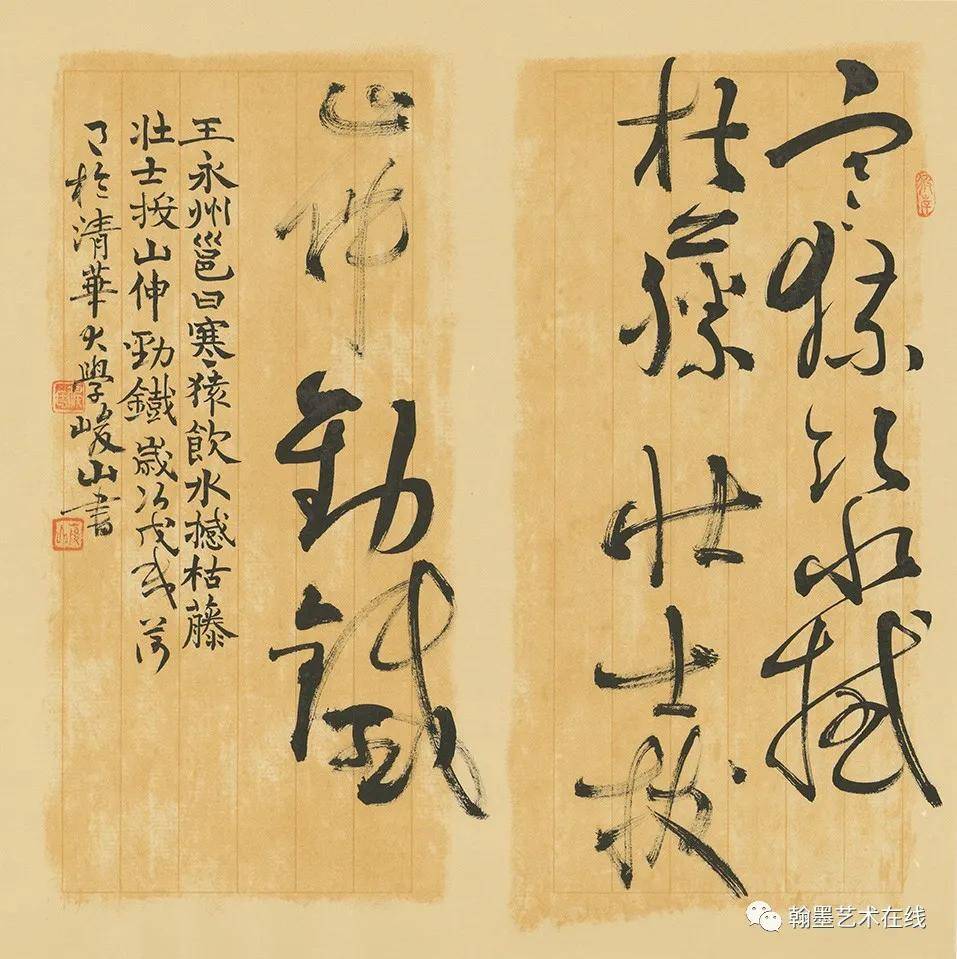 寒猿飲水撼
枯藤壮士拔
山伸勁鐵
王永州邕曰寒猿飲水撼枯藤
壮士拔山伸勁鐵歲次戊戌荷
月於清華大學峻山書
翰墨艺术在线